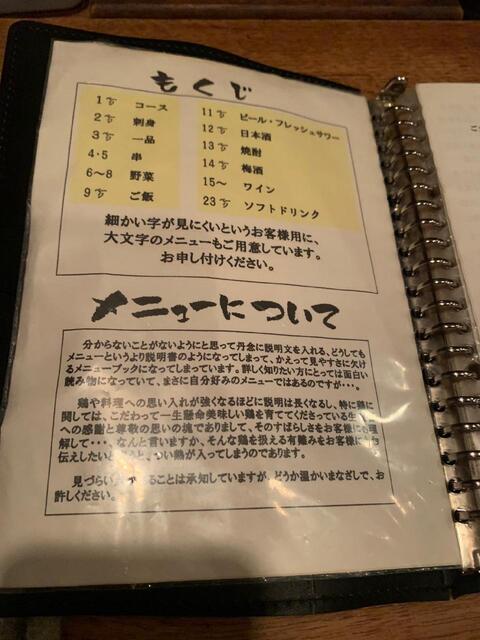 もくじ
1㌻ コース
2㌻ 刺身
3㌻ 一品
4・5 串
6〜8 野菜
9㌻ ご飯
11㌻ ビール・フレッシュサワー
12㌻ 日本酒
13㌻ 焼酎
14㌻ 梅酒
15〜 ワイン
23㌻ ソフトドリンク
細かい字が見にくいというお客様用に、
大文字のメニューもご用意しています。
お申し付けください。
メニューについて
分からないことがないようにと思って丹念に説明文を入れる、どうしても
メニューというより説明書のようになってしまって、かえって見やすさに欠け
るメニューブックになってしまっています。詳しく知りたい方にとっては面白い
読み物になっていて、まさに自分好みのメニューではあるのですが・・・。
鶏や料理への思い入れが強くなるほどに説明は長くなるし、特に鶏に
関しては、こだわって一生懸命美味しい鶏を育ててくださっている生
への感謝と尊敬の思いの塊でありまして、そのすばらしさをお客様にも理
解して・・・、なんと言いますか、そんな鶏を扱える有難みをお客様に
伝えしたい つい熱が入ってしまうのであります。
見づらい ることは承知していますが、どうか温かいまなざしで、お
許しください。